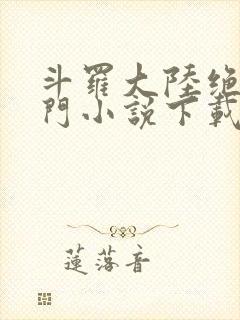 斗羅大陸絶
門小説下載
蓮落音